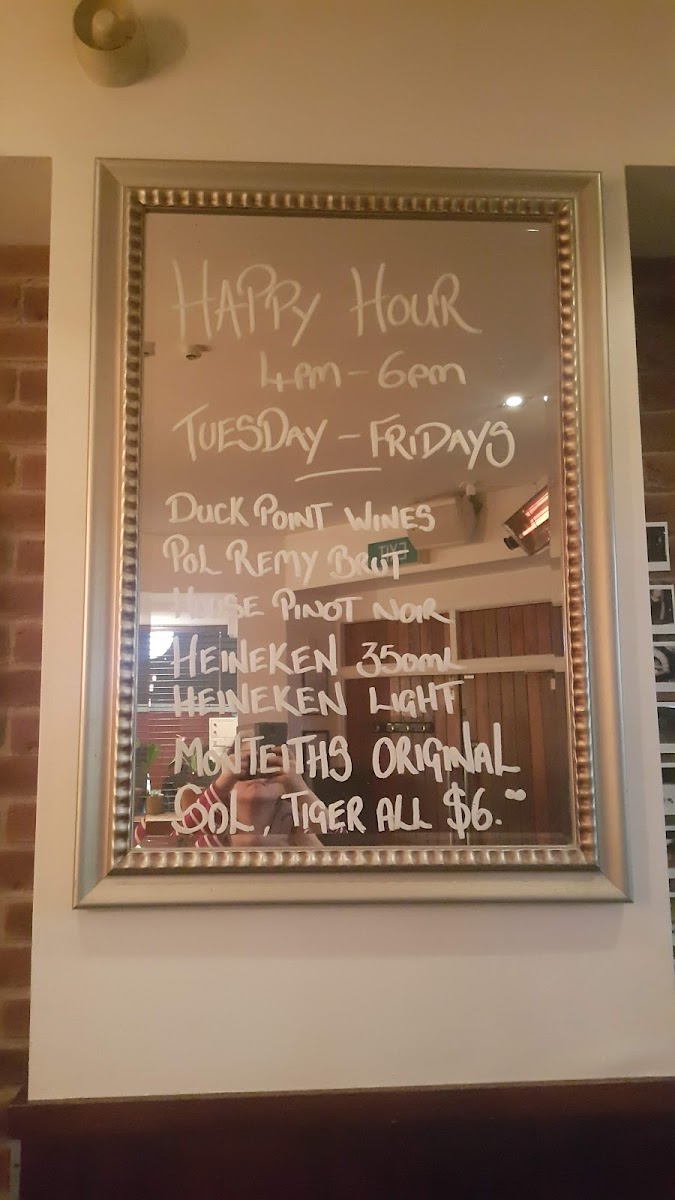 HAPPY HOUR
4pm - 6pm
TUESDAY - FRIDAYS
DUCK POINT WINES
POL REMY BRUT
HOUSE PINOT NOIR
HEINEKEN 350ML
HEINEKEN LIGHT
MONTEITHS ORIGINAL
SOL, TIGER ALL $6.00
EXIT